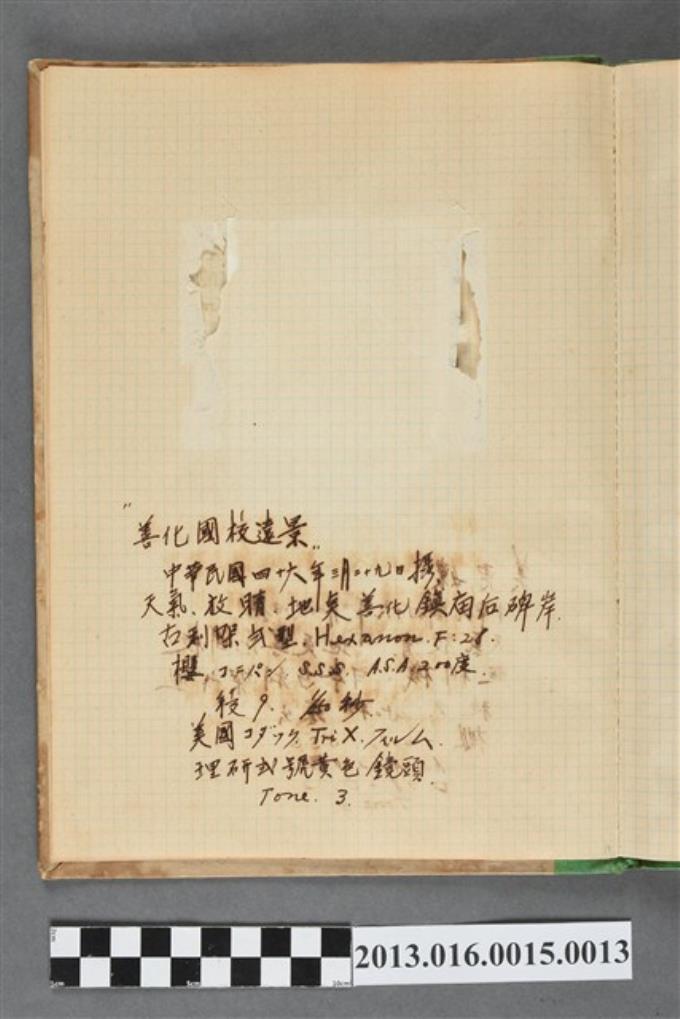 "善化國校遠景"
中華民國四十六年三月二十九日攝
天氣、放晴、地臭善化鎮庙后碑岸.
古利 弍型. Hexanon. F:28.
櫻. コニパン S.S.S. A.S.A. 200度.
9. 秒.
美國コダック. Tri X. フィルム.
理研弍號黄色鏡頭.
Tone. 3.
2013.016.0015.0013
0cm 5cm 10cm